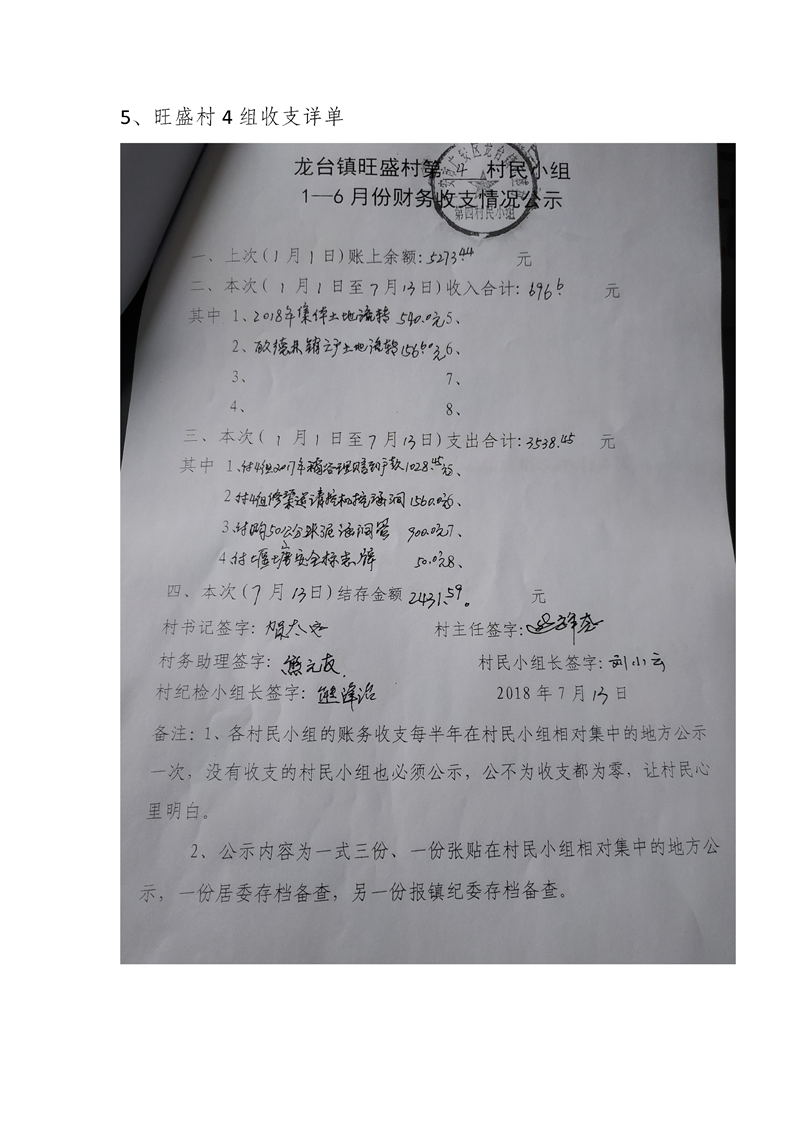 5、旺盛村 4 组收支详单
龙台镇旺盛村第 4 村民小组
1—6 月份财务收支情况公示
第四村民小组
一、上次(1月1日)账上余额:5273.44 元
二、本次( 1月1日至7月13日)收入合计:696.6 元
其中 1、2018年集体土地流转 540.0元5、
2、 土地流转156.60元6、
3、 7、
4、 8、
三、本次( 1月1日至7月13日)支出合计:3538.45 元
其中 1、付4组2017年 款1028.45元5、
2付4组修渠道请挖机挖涵洞1560.0元6、
3.付购50公分水泥涵洞管 900.0元7、
4.付堰塘安全标志牌 50.0元8、
四、本次(7月13日)结存金额 2431.59。 元
村书记签字: 村主任签字:
村务助理签字:熊元友. 村民小组长签字:刘小云
村纪检小组长签字: 2018年7月13日
备注:1、各村民小组的账务收支每半年在村民小组相对集中的地方公示
一次,没有收支的村民小组也必须公示,公不为收支都为零,让村民心
里明白。
2、公示内容为一式三份、一份张贴在村民小组相对集中的地方公
示,一份居委存档备查,另一份报镇纪委存档备查。